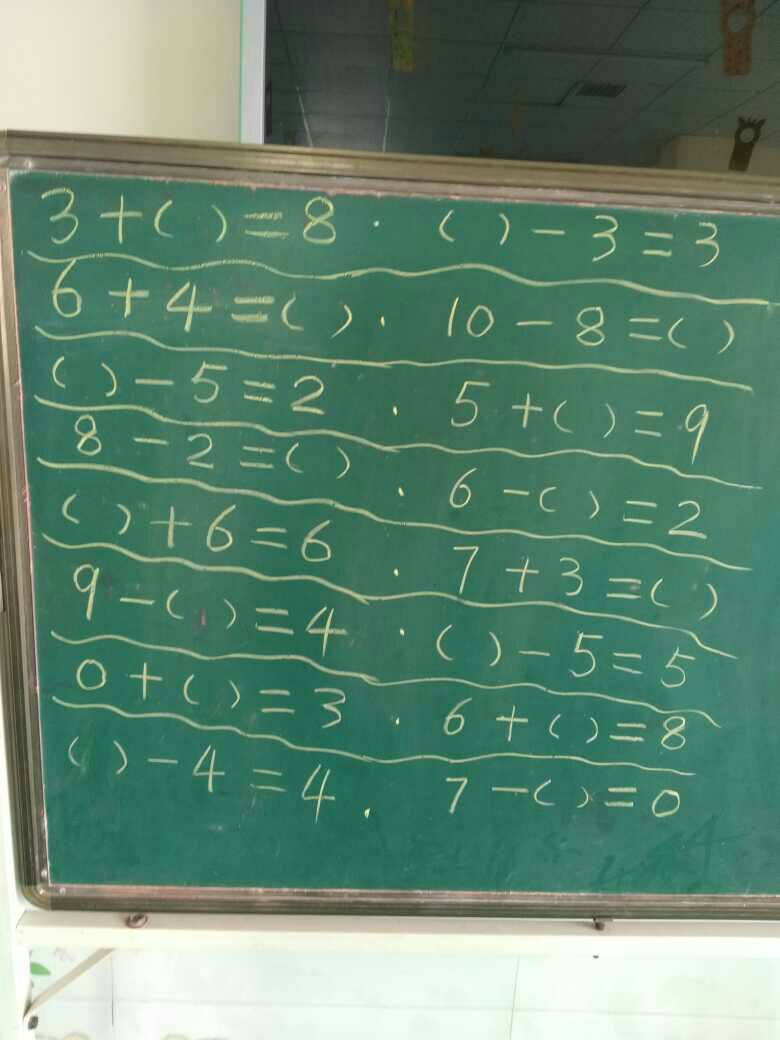 3+( )=8 . ( )-3=3
6+4=( ). 10-8=( )
( )-5=2 . 5+( )=9
8-2=( ) . 6-( )=2
( )+6=6 . 7+3=( )
9-( )=4 . ( )-5=5
0+( )=3 . 6+( )=8
( )-4=4 . 7-( )=0